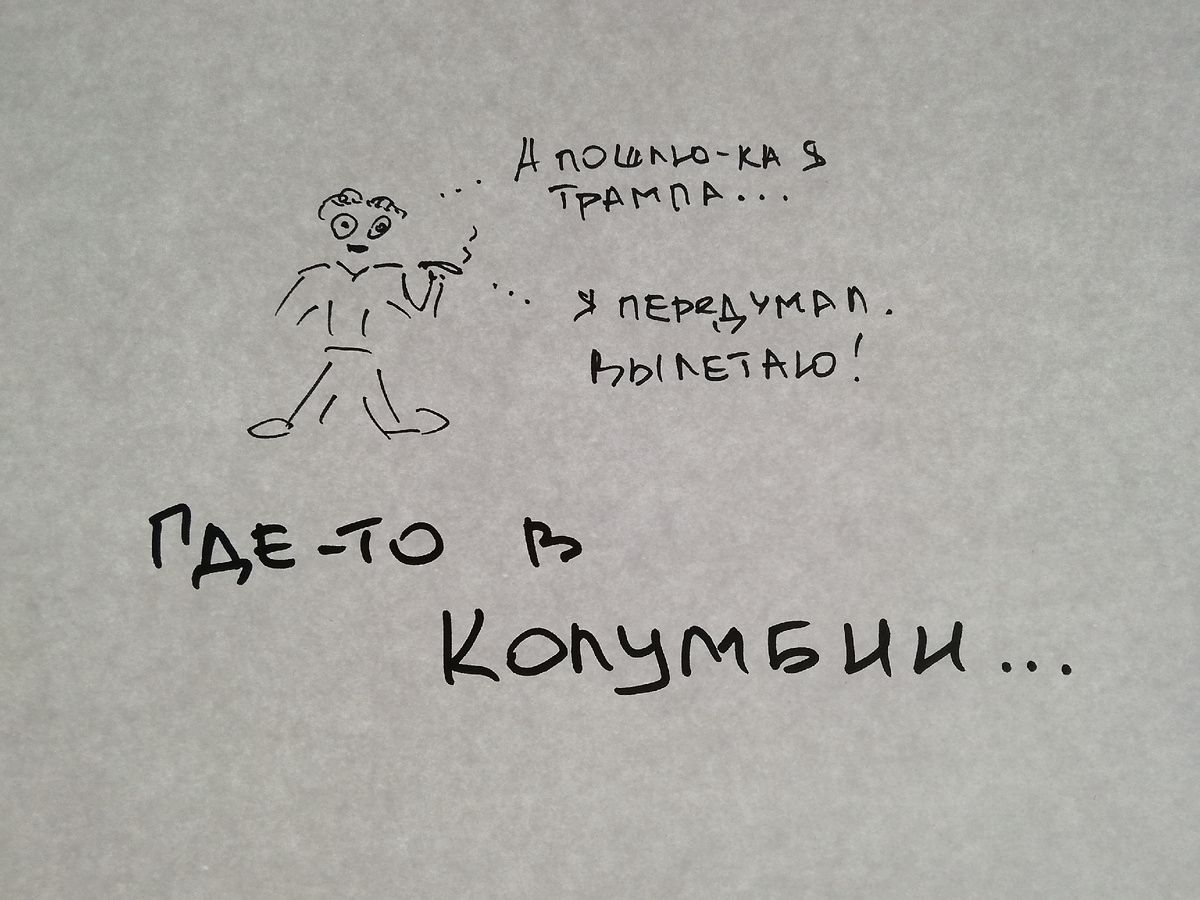 ... А ПОШЛЮ-КА Я
ТРАМПА...
... Я ПЕРЕДУМАЛ.
ВЫЛЕТАЮ!
ГДЕ-ТО В
КОЛУМБИИ...